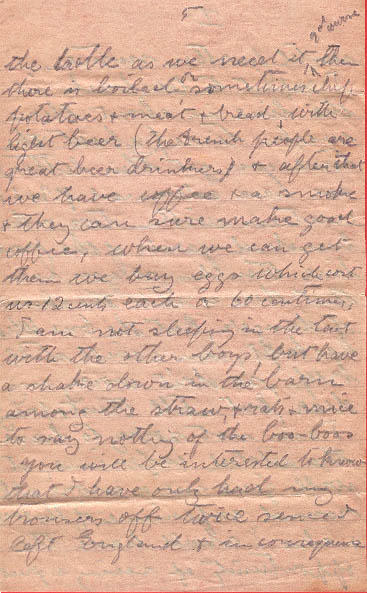 5
2nd course
the table as we need it, then
there is boiled or sometimes chip
potatoes + meat + bread, with
light beer (the French people are
great beer drinkers) + after that
we have coffee + a smoke
+ they can sure make good
coffee, when we can get
them we buy eggs which cost
us 12 cents each or 60 centimes,
I am not sleeping in the tent
with the other boys, but have
a shake down in the barn
among the straw, + rats + mice
to say nothing of the boo-boos
You will be interested to know
that I have only had my
trousers off twice since I
left England + in consequence